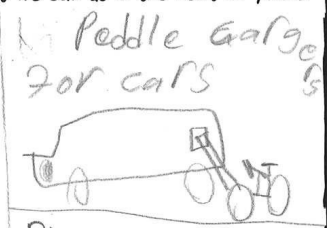 Peddle Gargers
for cars